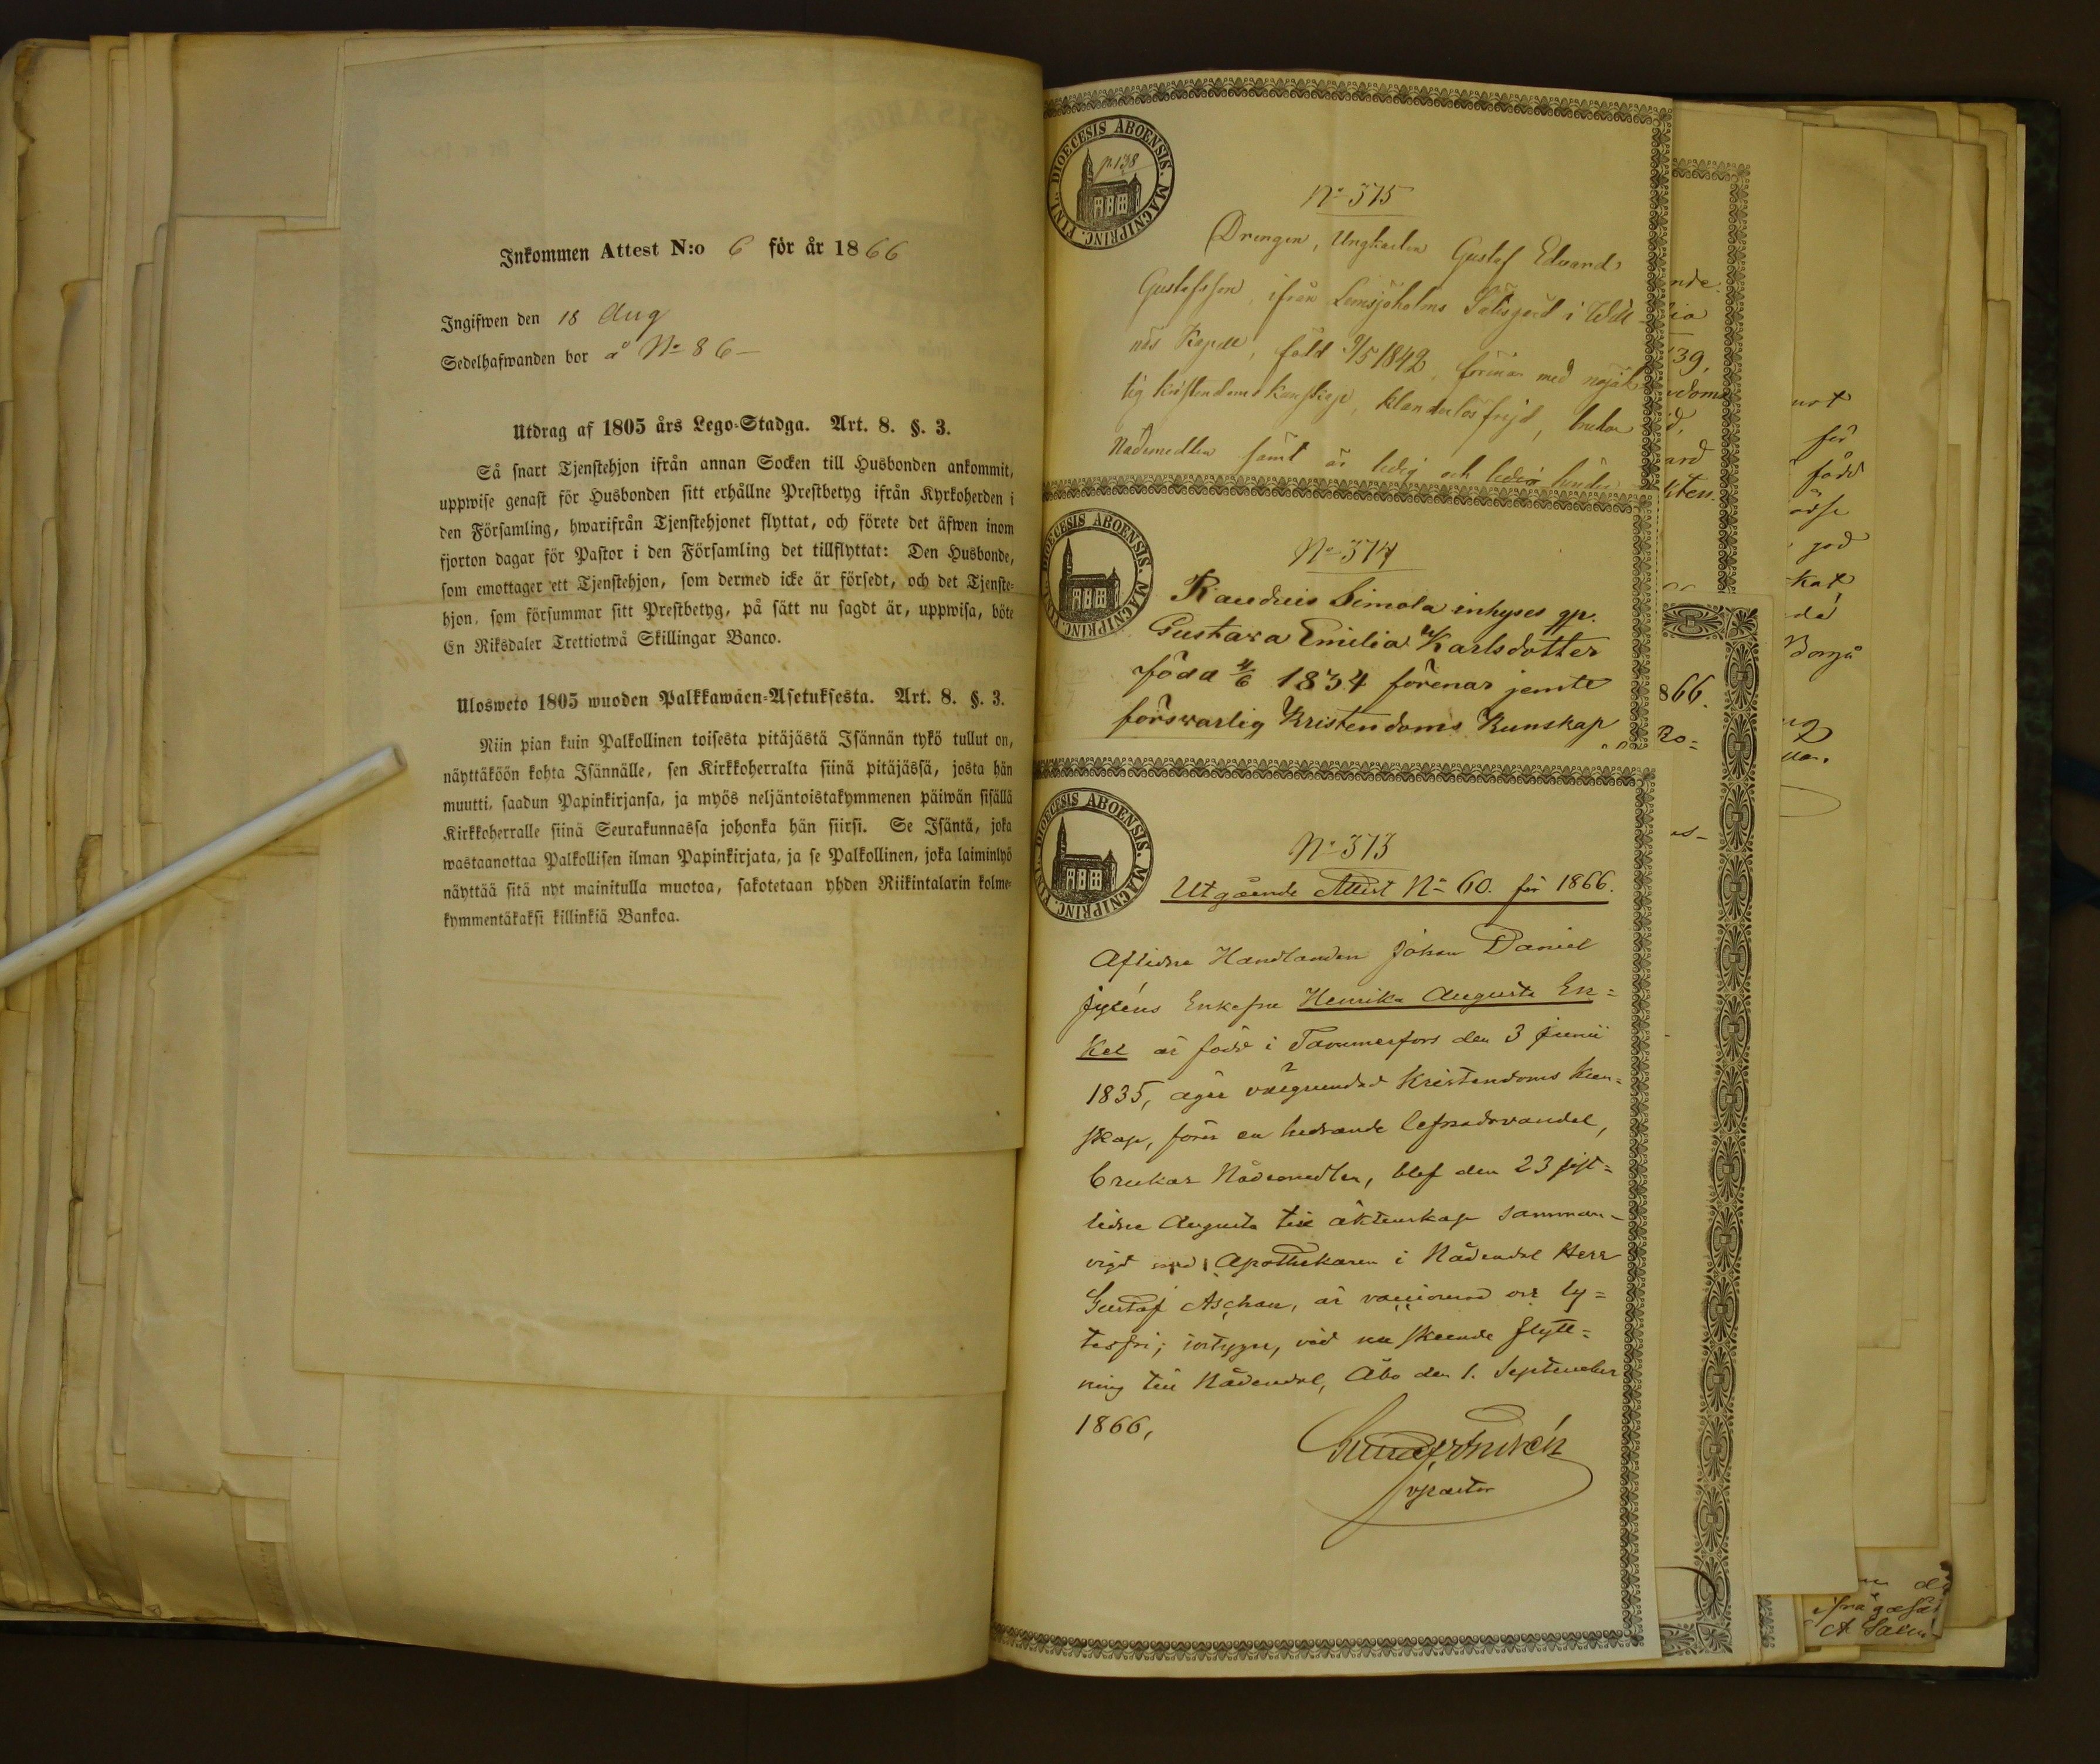 Inkommen Attest N:o 6 för år 1866
Ingifwen den 18 Aug
Sedelhafwanden bor å No 86 —
Utdrag af 1805 års Lego-Stadga. Art. 8. §. 3.
Så snart Tjenstehjon ifrån annan Socken till Husbonden ankommit,
uppwise genast för Husbonden sitt erhållne Prestbetyg ifrån Kyrkoherden i
den Församling, hwarifrån Tjenstehjonet flyttat, och förete det äfwen inom
fjorton dagar för Pastor i den Församling det tillflyttat: Den Husbonde,
som emottager ett Tjenstehjon, som dermed icke är försedt, och det Tjenste-
hjon, som försummar sitt Prestbetyg, på sätt nu sagdt är, uppwisa, böte
En Riksdaler Trettiotwå Skillingar Banco.
Ulosweto 1805 wuoden Palkkawäen-Asetuksesta. Art. 8. §. 3.
Niin pian kuin Palkollinen toisesta pitäjästä Isännän tykö tullut on,
näyttäköön kohta Isännälle, sen Kirkkoherralta siinä pitäjässä, josta hän
muutti, saadun Papinkirjansa, ja myös neljäntoistakymmenen päiwän sisällä
Kirkkoherralle siinä Seurakunnassa johonka hän siirsi. Se Isäntä, joka
wastaanottaa Palkollisen ilman Papinkirjata, ja se Palkollinen, joka laiminlyö
näyttää sitä nyt mainitulla muotoa, sakotetaan yhden Riikintalarin kolme-
kymmentäkaksi killinkiä Bankoa.
DIOECESIS ABOENSIS. MAGNIPRINC. FINL.
p. 138
No 375
Drengen, Ungkarlen Gustaf Edvard
Gustafsson, ifrån Lemsjöholms Sätesgård i Will-
näs Kapell, född 9/5 1842, förenar med nöjak
tig kristendoms kunskap, klanderlös frejd, brukar
Nådemedlen samt är ledig och
DIOECESIS ABOENSIS. MAGNIPRINC. FINL.
No 374
Raunduis Simola inhyses qp.
Gustava Emilia Karlsdotter
född 4/6 1834 förenar jemte
förswarlig Kristendoms Kunskap
DIOECESIS ABOENSIS. MAGNIPRINC. FINL.
No 373
Utgående Attest No 60. för 1866.
Aflidne Handlanden Johan Daniel
Enkefru Henrika Augusta En=
kel är född i Tammerfors den 3 Junii
1835, äger välgrundad Kristendoms kun=
skap, förer en hedrande lefnadsvandel,
brukar Nådemedlen, blef den 23 sist=
lidne Augusti till äktenskap samman-
vigd med Apothekaren i Nådendal Herr
Gustaf Aschan, är vaccinerad och ly=
tesfri; intygar, vid nu skeende flytt=
ning till Nådendal, Åbo den 1. September
1866,
v pastor